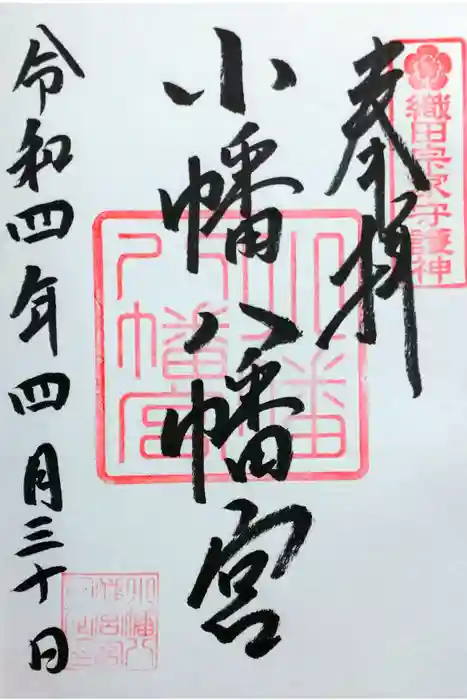 織田宗家守護神
奉拝
小幡八幡宮
小幡八幡宮
令和四年四月三十日